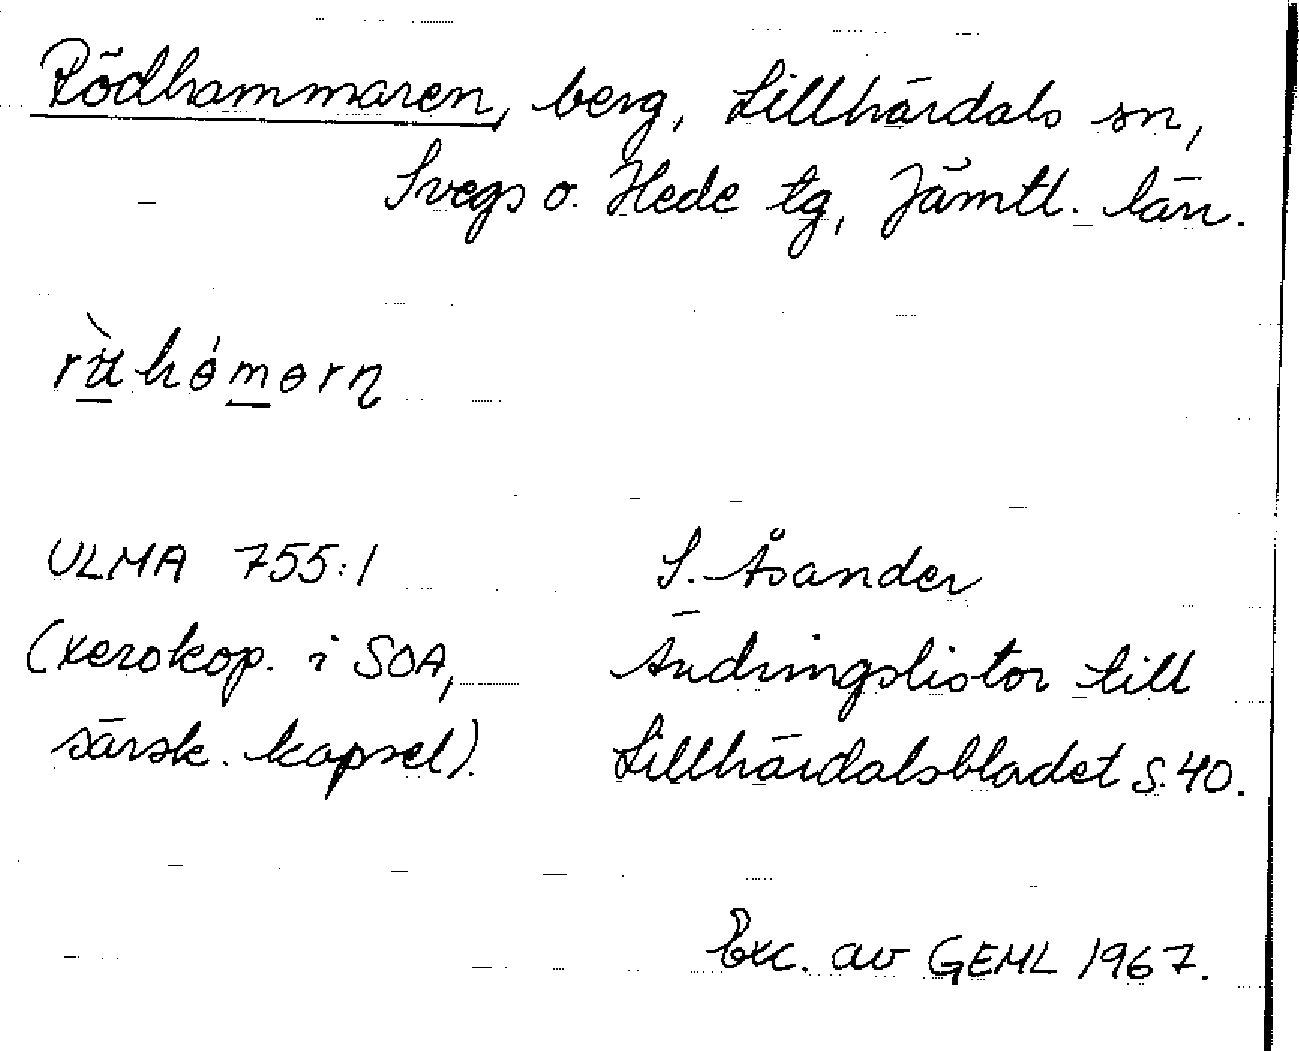 Rödhammaren, berg, Lillhärdals sn,
Svegs o. Hede tg, Jämtl. län.
ULMA 755:1
S. Åsander
(xerokop. i SOA,
Ändringslistor till
särsk. kapsel).
Lillhärdalsbladet s. 40.
Exc. av GEML 1967.